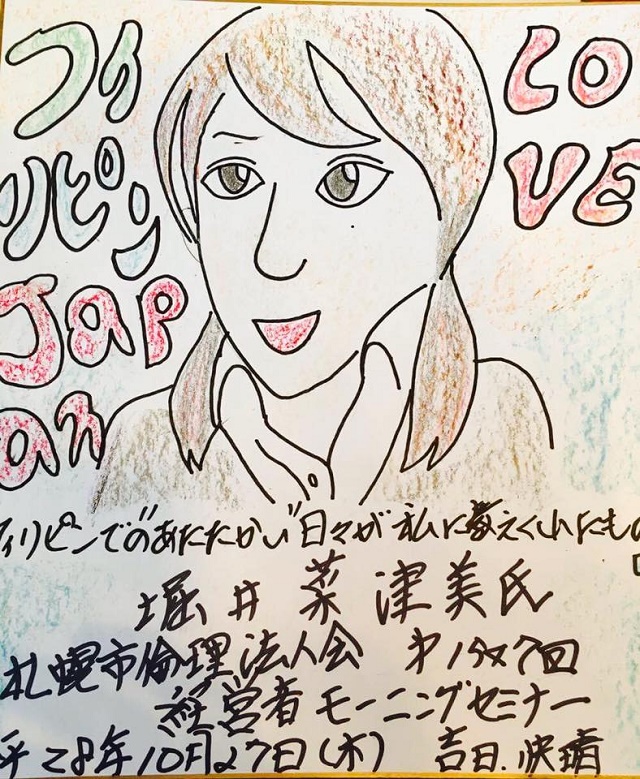 フィ
リピン
Jap
an
LO
VE
フィリピンでの"あたたかい"日々が私に教えてくれたもの
堀井菜津美氏
札幌市倫理法人会
経営者モーニングセミナー
平28年10月27日(木) 吉日.快晴